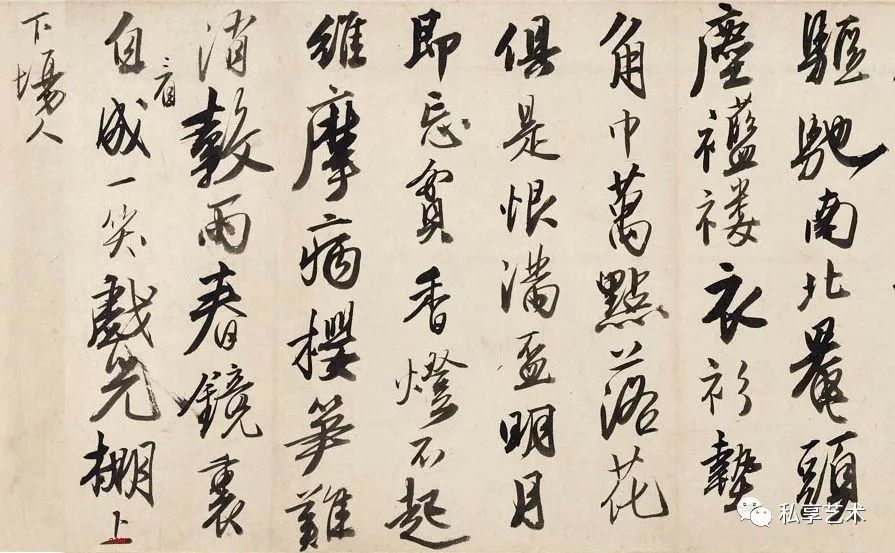 驅馳南北罨頭
塵襤褸衣衫墊
角巾萬點落花
俱是恨滿盃明月
即忘貧香燈不起
維摩病櫻笋難
消穀雨春鏡裏
自看成一笑戲児棚上
下場人
私享艺术